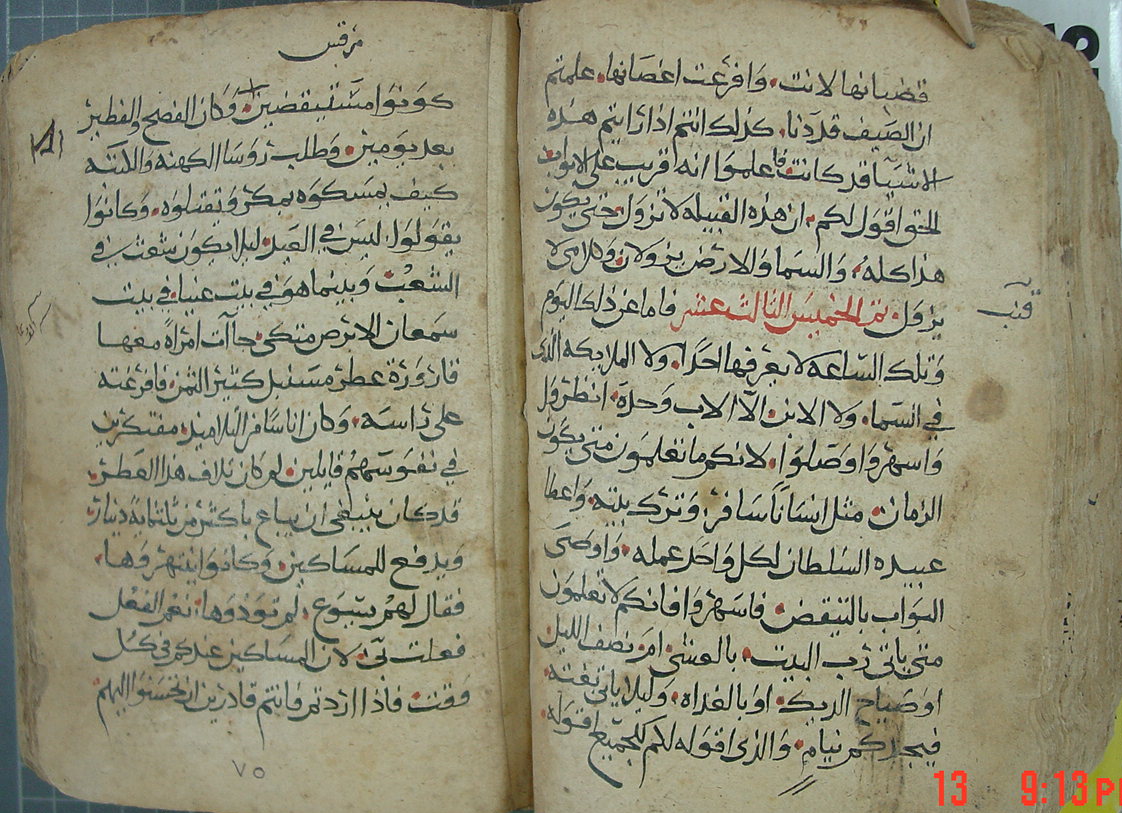 قضبانها لانت. وافرعت اغصانها. علمتم
ان الصيف قد دنا. كذلك انتم اذا رايتم هذه
الاشيا قد كانت فاعلموا انه قريب على الابواب
الحق اقول لكم. ان هذه القبيله لا تزول. حتى يكون
هذا كله. والسما والارض يزولان وكلامى لا
يزول. تم الخميس الثالث عشر فاما عن ذلك اليوم
وتلك الساعه لا يعرفها احدا. ولا الملايكه الذى
في السما. ولا الابن الا الاب وحده. انظروا
واسهروا وصلوا. لانكم ما تعلمون متى يكون
الزمان. مثل انسانا سافر وترك بيته. واعطا
عبيده السلطان لكل واحد عمله. واوصى
البواب بالتيقض. فاسهروا فانكم لا تعلمون
متى ياتى رب البيت. بالعشى ام نصف الليل
او صياح الديك. او بالغداه. وليلا ياتى بغته.
فيجدكم نيام. والذى اقوله لكم للجميع اقوله.
قنب
مرقس
كونوا مستيقضين. وكان الفصح والفطير
بعد يومين. وطلب روسا الكهنه والكتبه
كيف يمسكوه بمكر ويقتلوه. وكانوا
يقولوا. ليس في العيد. ليلا يكون شعث في
الشعب. وبينما هو في بيت عنيا. في بيت
سمعان الابرص متكى. جاات امراة معها
قارورة عطر مسنبل كثير الثمن. فافرغته
على راسه. وكان اناسا من التلاميذ. مفتكرين
في نفوسهم قايلين. لم كان تلاف هذا العطر.
قد كان ينبغى ان يباع باكثر من ثلثماية دينار.
ويدفع للمساكين. وكانوا ينتهروها.
فقال لهم يسوع. لم توذوها. نعم الفعل
فعلت بى. لان المساكين عندكم في كل
وقت. فاذا اردتم فانتم قادرين ان تحسنوا اليهم
٧٥
13 9:13 P